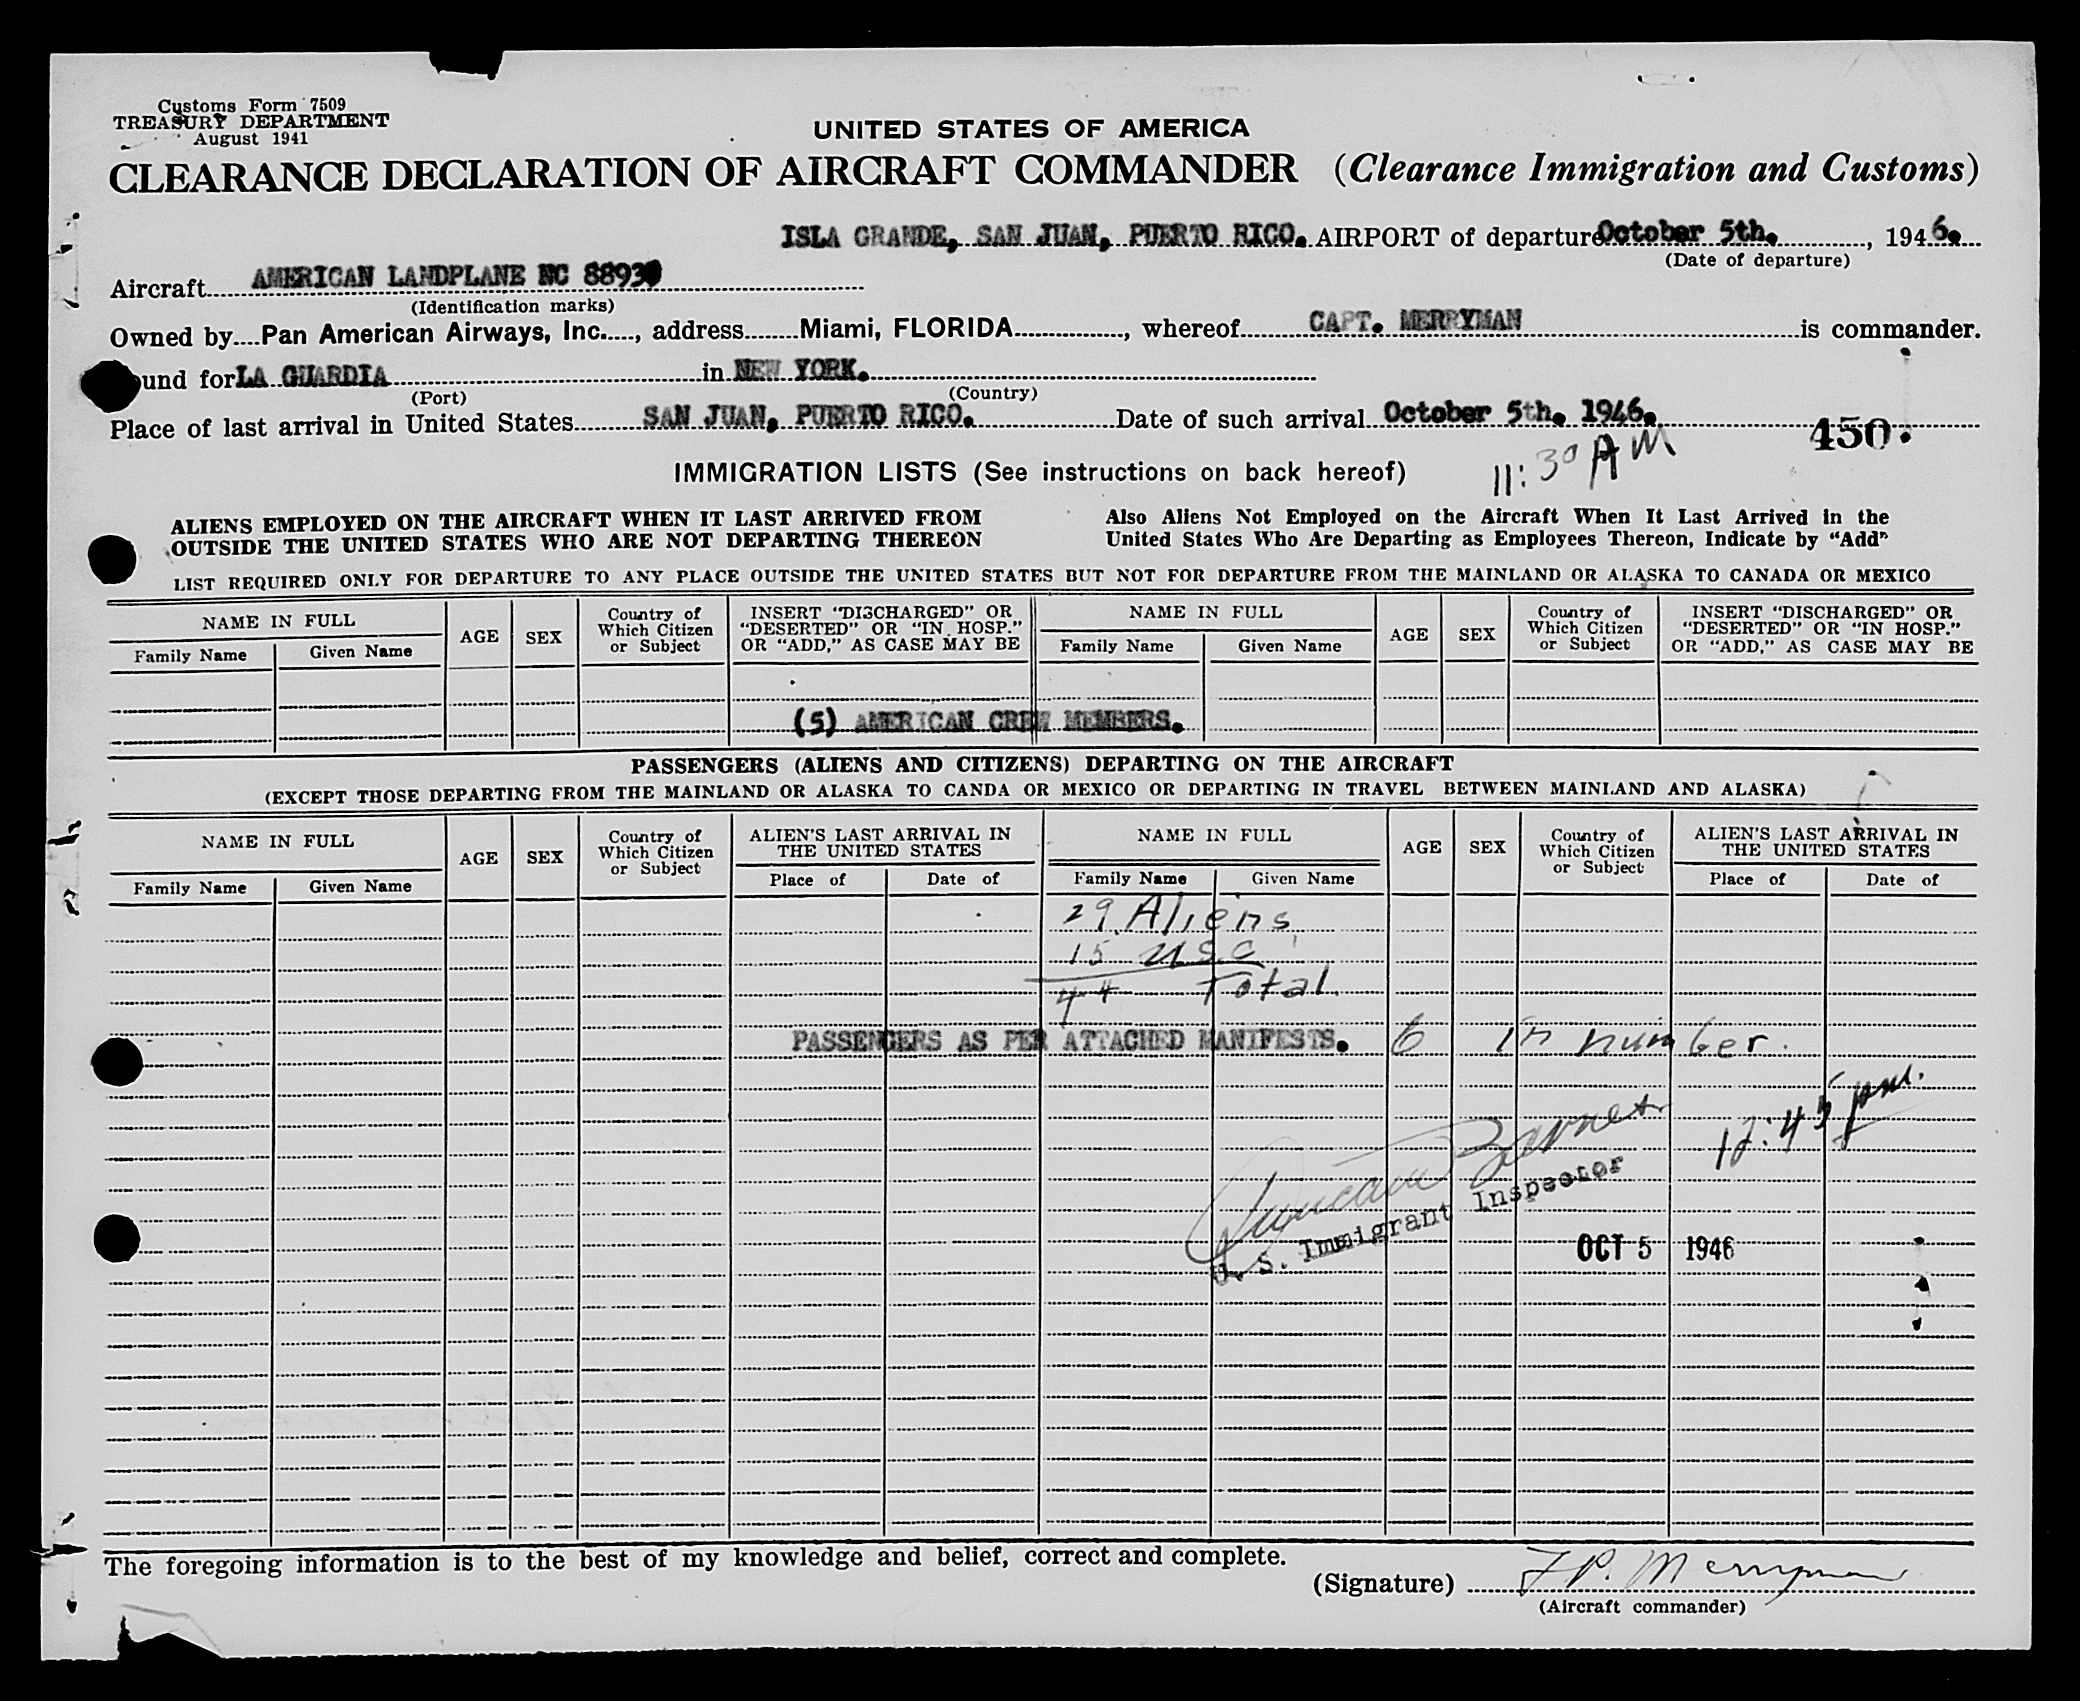 Customs Form 7509
TREASURY DEPARTMENT
August 1941
UNITED STATES OF AMERICA
CLEARANCE DECLARATION OF AIRCRAFT COMMANDER (Clearance Immigration and Customs)
ISLA GRANDE, SAN JUAN, PUERTO RICO. AIRPORT of departure October 5th. , 1946.
(Date of departure)
Aircraft AMERICAN LANDPLANE NC
(Identification marks)
Owned by Pan American Airways, Inc. , address Miami, FLORIDA , whereof CAPT. MERRYMAN is commander.
ound for LA GUARDIA in NEW YORK.
(Port) (Country)
Place of last arrival in United States SAN JUAN, PUERTO RICO. Date of such arrival October 5th. 1946.
450.
11:30 AM
IMMIGRATION LISTS (See instructions on back hereof)
ALIENS EMPLOYED ON THE AIRCRAFT WHEN IT LAST ARRIVED FROM
OUTSIDE THE UNITED STATES WHO ARE NOT DEPARTING THEREON
Also Aliens Not Employed on the Aircraft When It Last Arrived in the
United States Who Are Departing as Employees Thereon, Indicate by "Add"
LIST REQUIRED ONLY FOR DEPARTURE TO ANY PLACE OUTSIDE THE UNITED STATES BUT NOT FOR DEPARTURE FROM THE MAINLAND OR ALASKA TO CANADA OR MEXICO
NAME IN FULL
Family Name Given Name
AGE
SEX
Country of
Which Citizen
or Subject
INSERT "DISCHARGED" OR
"DESERTED" OR "IN HOSP."
OR "ADD," AS CASE MAY BE
NAME IN FULL
Family Name Given Name
AGE
SEX
Country of
Which Citizen
or Subject
INSERT "DISCHARGED" OR
"DESERTED" OR "IN HOSP."
OR "ADD," AS CASE MAY BE
(5) AMERICAN CREW MEMBERS.
PASSENGERS (ALIENS AND CITIZENS) DEPARTING ON THE AIRCRAFT
(EXCEPT THOSE DEPARTING FROM THE MAINLAND OR ALASKA TO CANDA OR MEXICO OR DEPARTING IN TRAVEL BETWEEN MAINLAND AND ALASKA)
NAME IN FULL
Family Name Given Name
AGE
SEX
Country of
Which Citizen
or Subject
ALIEN'S LAST ARRIVAL IN
THE UNITED STATES
Place of Date of
NAME IN FULL
Family Name Given Name
AGE
SEX
Country of
Which Citizen
or Subject
ALIEN'S LAST ARRIVAL IN
THE UNITED STATES
Place of Date of
29 Aliens
15 U.S.C
44 Total
PASSENGERS AS PER ATTACHED MANIFESTS. 6 in number.
12:45 pm.
Duncan Barnet
U. S. Immigrant Inspector
OCT 5 1946
The foregoing information is to the best of my knowledge and belief, correct and complete.
(Signature) F P. Merryman
(Aircraft commander)